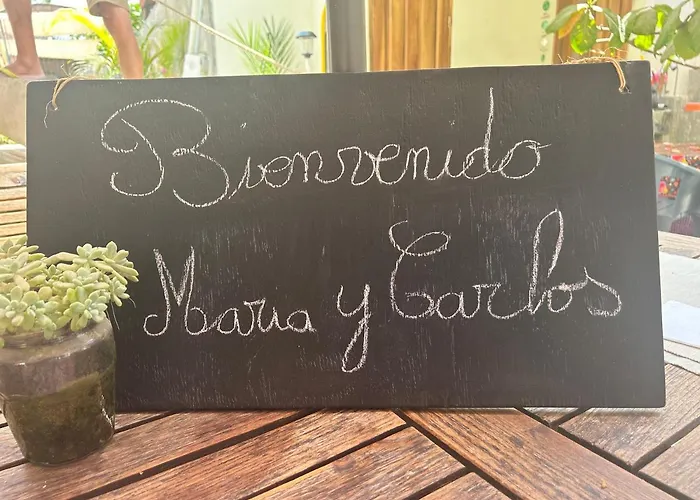 Bionvenido
Maria y Carlos